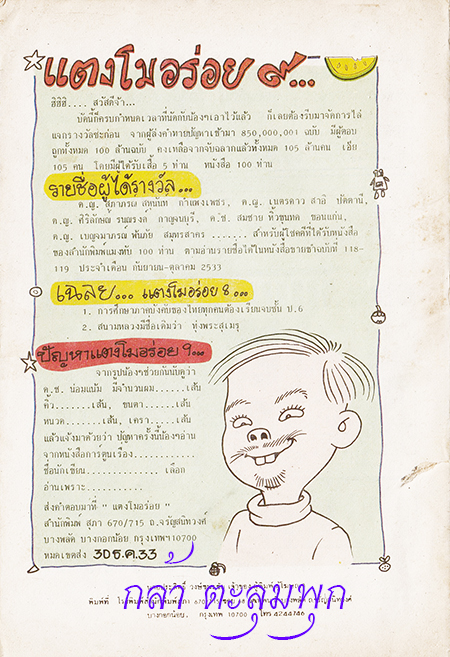 แตงโมอร่อย ๙...
ฮิฮิฮิ.... สวัสดีจ้า...
บัดนี้ก็ครบกำหนดเวลาที่นัดกับน้องๆเอาไว้แล้ว ก็เลยต้องรีบมาจัดการไล่
แจกรางวัลซะก่อน จากผู้ส่งคำทายปัญหาเข้ามา 850,000,001 ฉบับ มีผู้ตอบ
ถูกทั้งหมด 100 ล้านฉบับ คงเหลือจากจับฉลากแล้วทั้งหมด 105 ล้านคน เอ๊ย
105 คน โดยมีผู้ได้รับเสื้อ 5 ท่าน หนังสือ 100 ท่าน
รายชื่อผู้ได้รางวัล...
ด.ญ. สุภาภรณ์ สุหนันท์ กำแพงเพชร, ด.ญ. เนตรดาว สาอิ ปัตตานี,
ด.ญ. ศิริลักษณ์ รณณรงค์ กาญจนบุรี, ด.ช. สมชาย ทั่วขุนทด ขอนแก่น,
ด.ญ. เบญจมาภรณ์ พันภัย สมุทรสาคร ....... สำหรับผู้โชคดีที่ได้รับหนังสือ
ของสำนักพิมพ์แมงทับ 100 ท่าน ตามอ่านรายชื่อได้ในหนังสือขายขำฉบับที่ 118-
119 ประจำเดือน กันยายน-ตุลาคม 2533
เฉลย... แตงโมอร่อย 8...
1. การศึกษาภาคบังคับของไทยทุกคนต้องเรียนจบชั้น ป.6
2. สนามหลวงมีชื่อเดิมว่า ทุ่งพระสุเมรุ
ปัญหาแตงโมอร่อย 9...
จากรูปน้องๆช่วยกันนับดูว่า
ด.ช. น่อมแน้ม มีจำนวนผม......เส้น
คิ้ว.......เส้น, ขนตา......เส้น
หนวด.......เส้น, เครา......เส้น
แล้วแจ้งมาด้วยว่า ปัญหาครั้งนี้น้องๆอ่าน
จากหนังสือการ์ตูนเรื่อง............
ชื่อนักเขียน............... เลือก
อ่านเพราะ............
ส่งคำตอบมาที่ " แตงโมอร่อย "
สำนักพิมพ์ สุภา 670/715 ถ.จรัญสนิทวงศ์
บางพลัด บางกอกน้อย กรุงเทพฯ10700
หมดเขตส่ง 30 ธ.ค.33
กล้า ตะลุมพุก
บางกอกน้อย. กรุงเทพ 10700 โทร 4244746